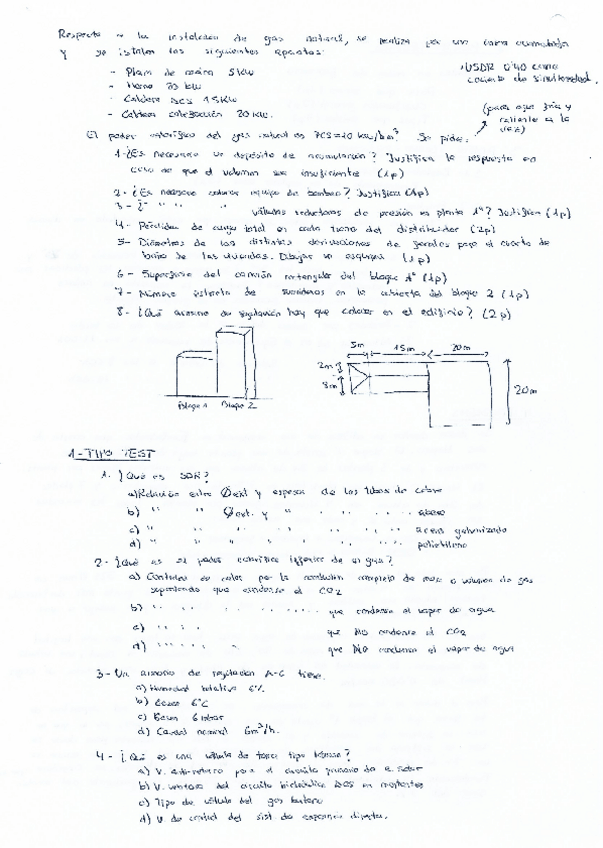 Respecto a la instalación de gas natural, se realiza por un
y se instalan los siguientes aparatos:
- Placa de cocina 5 kW
- Horno 20 kW
- Caldera ACS 15 kW
- Caldera calefacción 20 kW.
USAR 0'40 como
coeficiente de simultaneidad.
(para agua fría y
caliente a la
vez)
El poder calorífico del gas natural es PCS = 10 kW/m³. Se pide:
1- ¿Es necesario un depósito de acumulación? Justifica la respuesta en
caso de que el volumen sea insuficiente (1p)
2- ¿Es necesario colocar equipo de bombeo? Justifica (1p)
3- ¿" " " válvulas reductoras de presión en planta 1ª? Justifica (1p)
4- Pérdidas de carga total en cada tramo del distribuidor (2p)
5- Diámetros de las distintas derivaciones de para el cuarto de
baño de las viviendas. Dibujar un esquema (1p)
6- Superficie del canalón rectangular del bloque 1 (1p)
7- Número de sumideros en la cubierta del bloque 2 (1p)
8- ¿Qué armario de regulación hay que colocar en el edificio? (2p)
Bloque 1 Bloque 2
5m 15m 20m
2m
8m
20m
1- TIPO TEST
1. ¿Qué es SDR?
a) Relación entre Øext y espesor de los tubos de cobre
b) " " Øext. y " " " " acero
c) " " " " " " " acero galvanizado
d) " " " " " " " polietileno
2- ¿Qué es el poder calorífico inferior de un gas?
a) Cantidad de calor por la combustión completa de masa o volumen de gas
suponiendo que condense el CO2
b) " " " " que condense el vapor de agua
c) " " " que NO condense el CO2
d) " " " que NO condense el vapor de agua
3- Un armario de regulación A-6 tiene:
a) Humedad relativa 6%
b) 6°C
c) 6 mbar
d) Caudal nominal 6m³/h.
4- ¿Qué es una válvula de toma tipo?
a) V. antirretorno para el circuito primario de
b) V. del circuito hidráulico en
c) Tipo de válvula del gas butano
d) V de control del sist. de expansión directa.